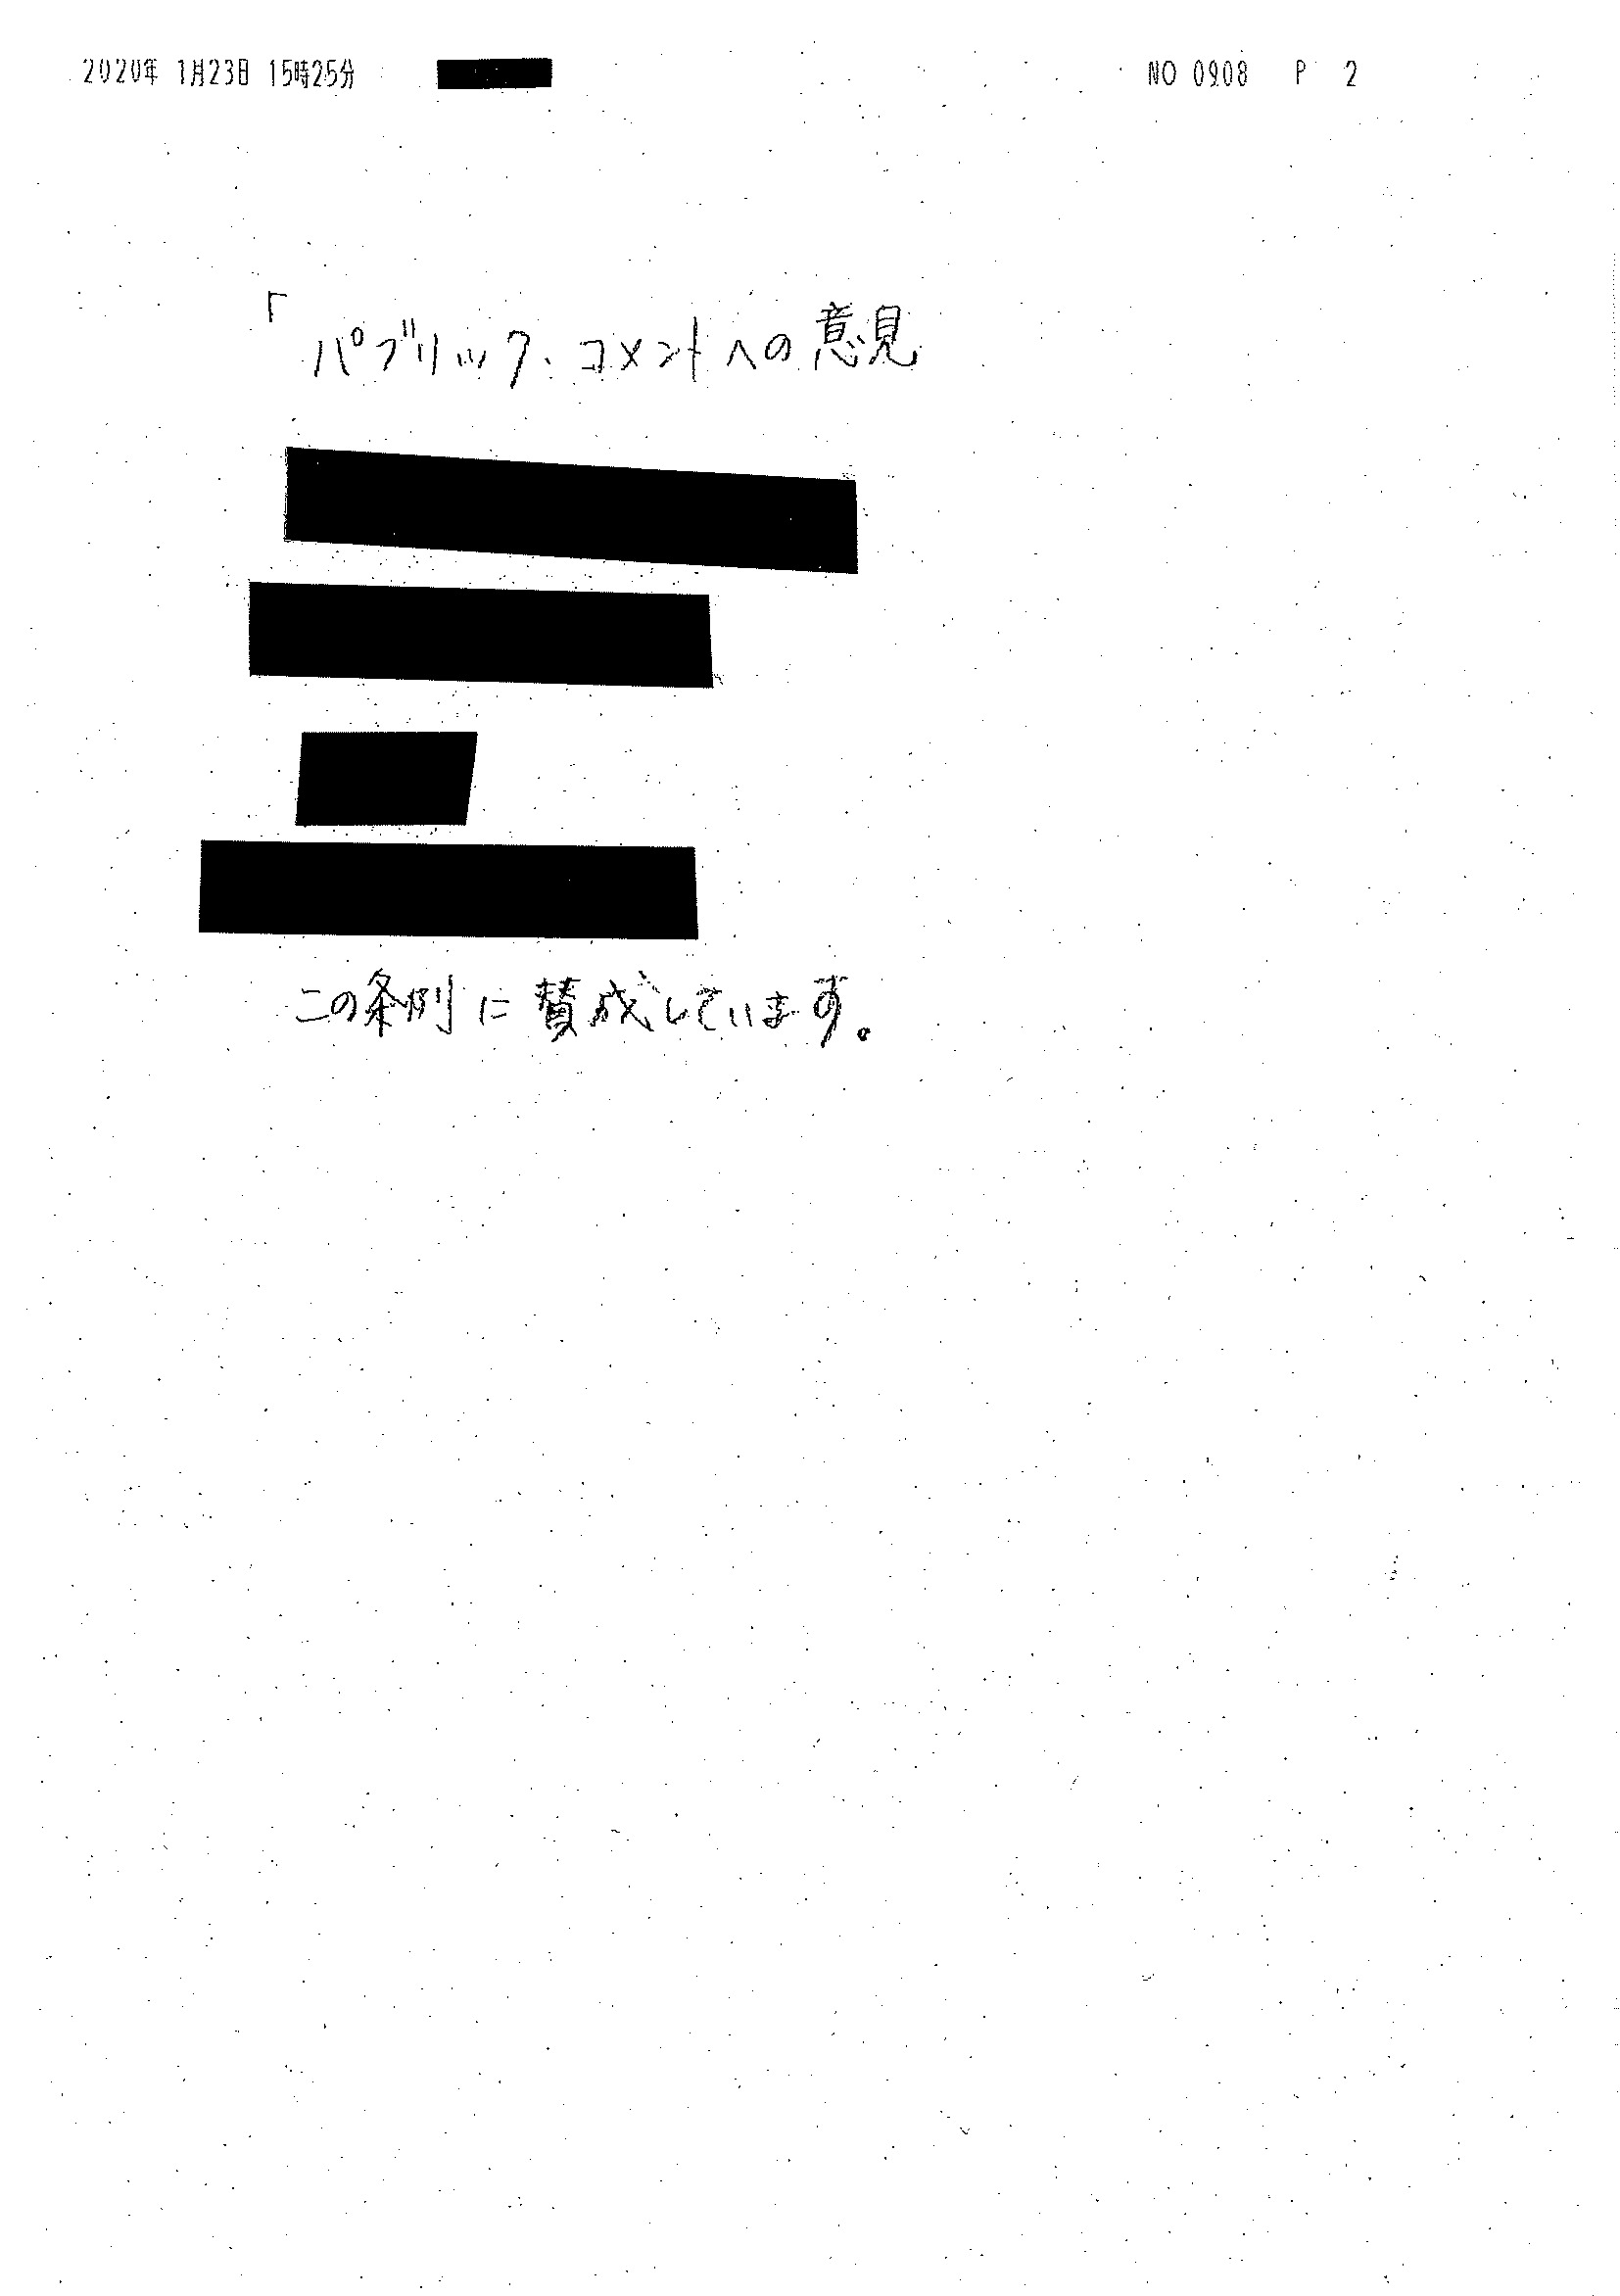 2020年 1月23日 15時25分 NO 0908 P 2
「パブリック・コメントへの意見
この条例に賛成しています。